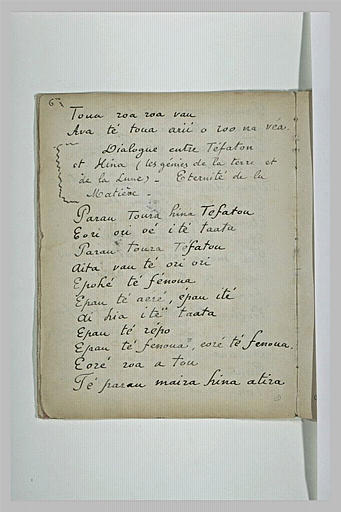 67
Toua roa roa vau
Ava té toua arii o roo na véa.
Dialogue entre Téfatou
et Hina (les génies de la terre et
de la Lune) _ Eternité de la
Matière _
Parau Toura hina Tefatou
Eori ori oé i té taata
Parau toura Téfatou
Aita vau té ori ori
Epohé té fénoua
Epau té aeré, épau ité
ai hia ité taata
Epau té répo
Epau té fenoua, eoré té fenoua.
Eoré roa a tou
Té parau maira hina atira